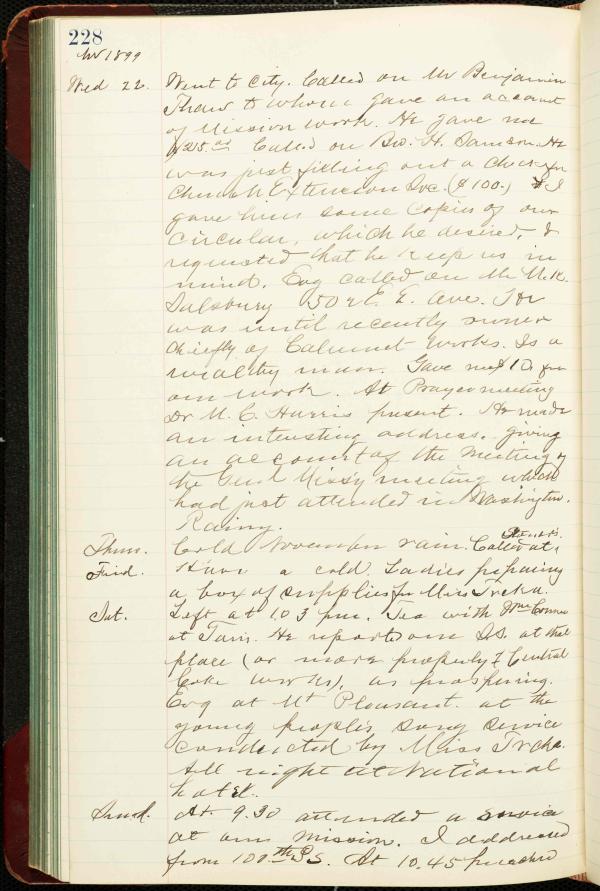 228
Nov 1899
Wed 22. Went to city. Called on Mr Benjamin
Thaw to whom gave an account
of Mission work. He gave me
$25.00 Called on Bro. H. Samson. He
was just filling out a check for
Church Extension Soc. ($100.) I
gave him some copies of our
circular, which he desired, &
requested that he keep us in
mind. Evg called on Mr
Salsbury 502 E. E. Ave. He
was until recently owner
chiefly of Calumet Works. Is a
wealthy man. Gave me $10 for
our work. At Prayermeeting
Dr M. C. Harris present. He made
an interesting address, giving
an account of the meeting of
the Genl Missy meeting which
had just attended in Washington.
Rainy.
Thurs. Cold November rain. Called at
Frid. Have a cold. Ladies preparing
a box of supplies for Miss Trcka.
Sat. Left at 1.03 pm. Tea with Wm
at Tarrs. He reports our S.S. at that
place (or more properly of Central
Coke works), as prospering.
Evg at Mt Pleasant. at the
young people's song service
conducted by Miss Trcka.
All night at National
hotel.
Sund. At 9.30 attended a service
at our mission. I addressed
from 100th Ps. At 10.45 preached